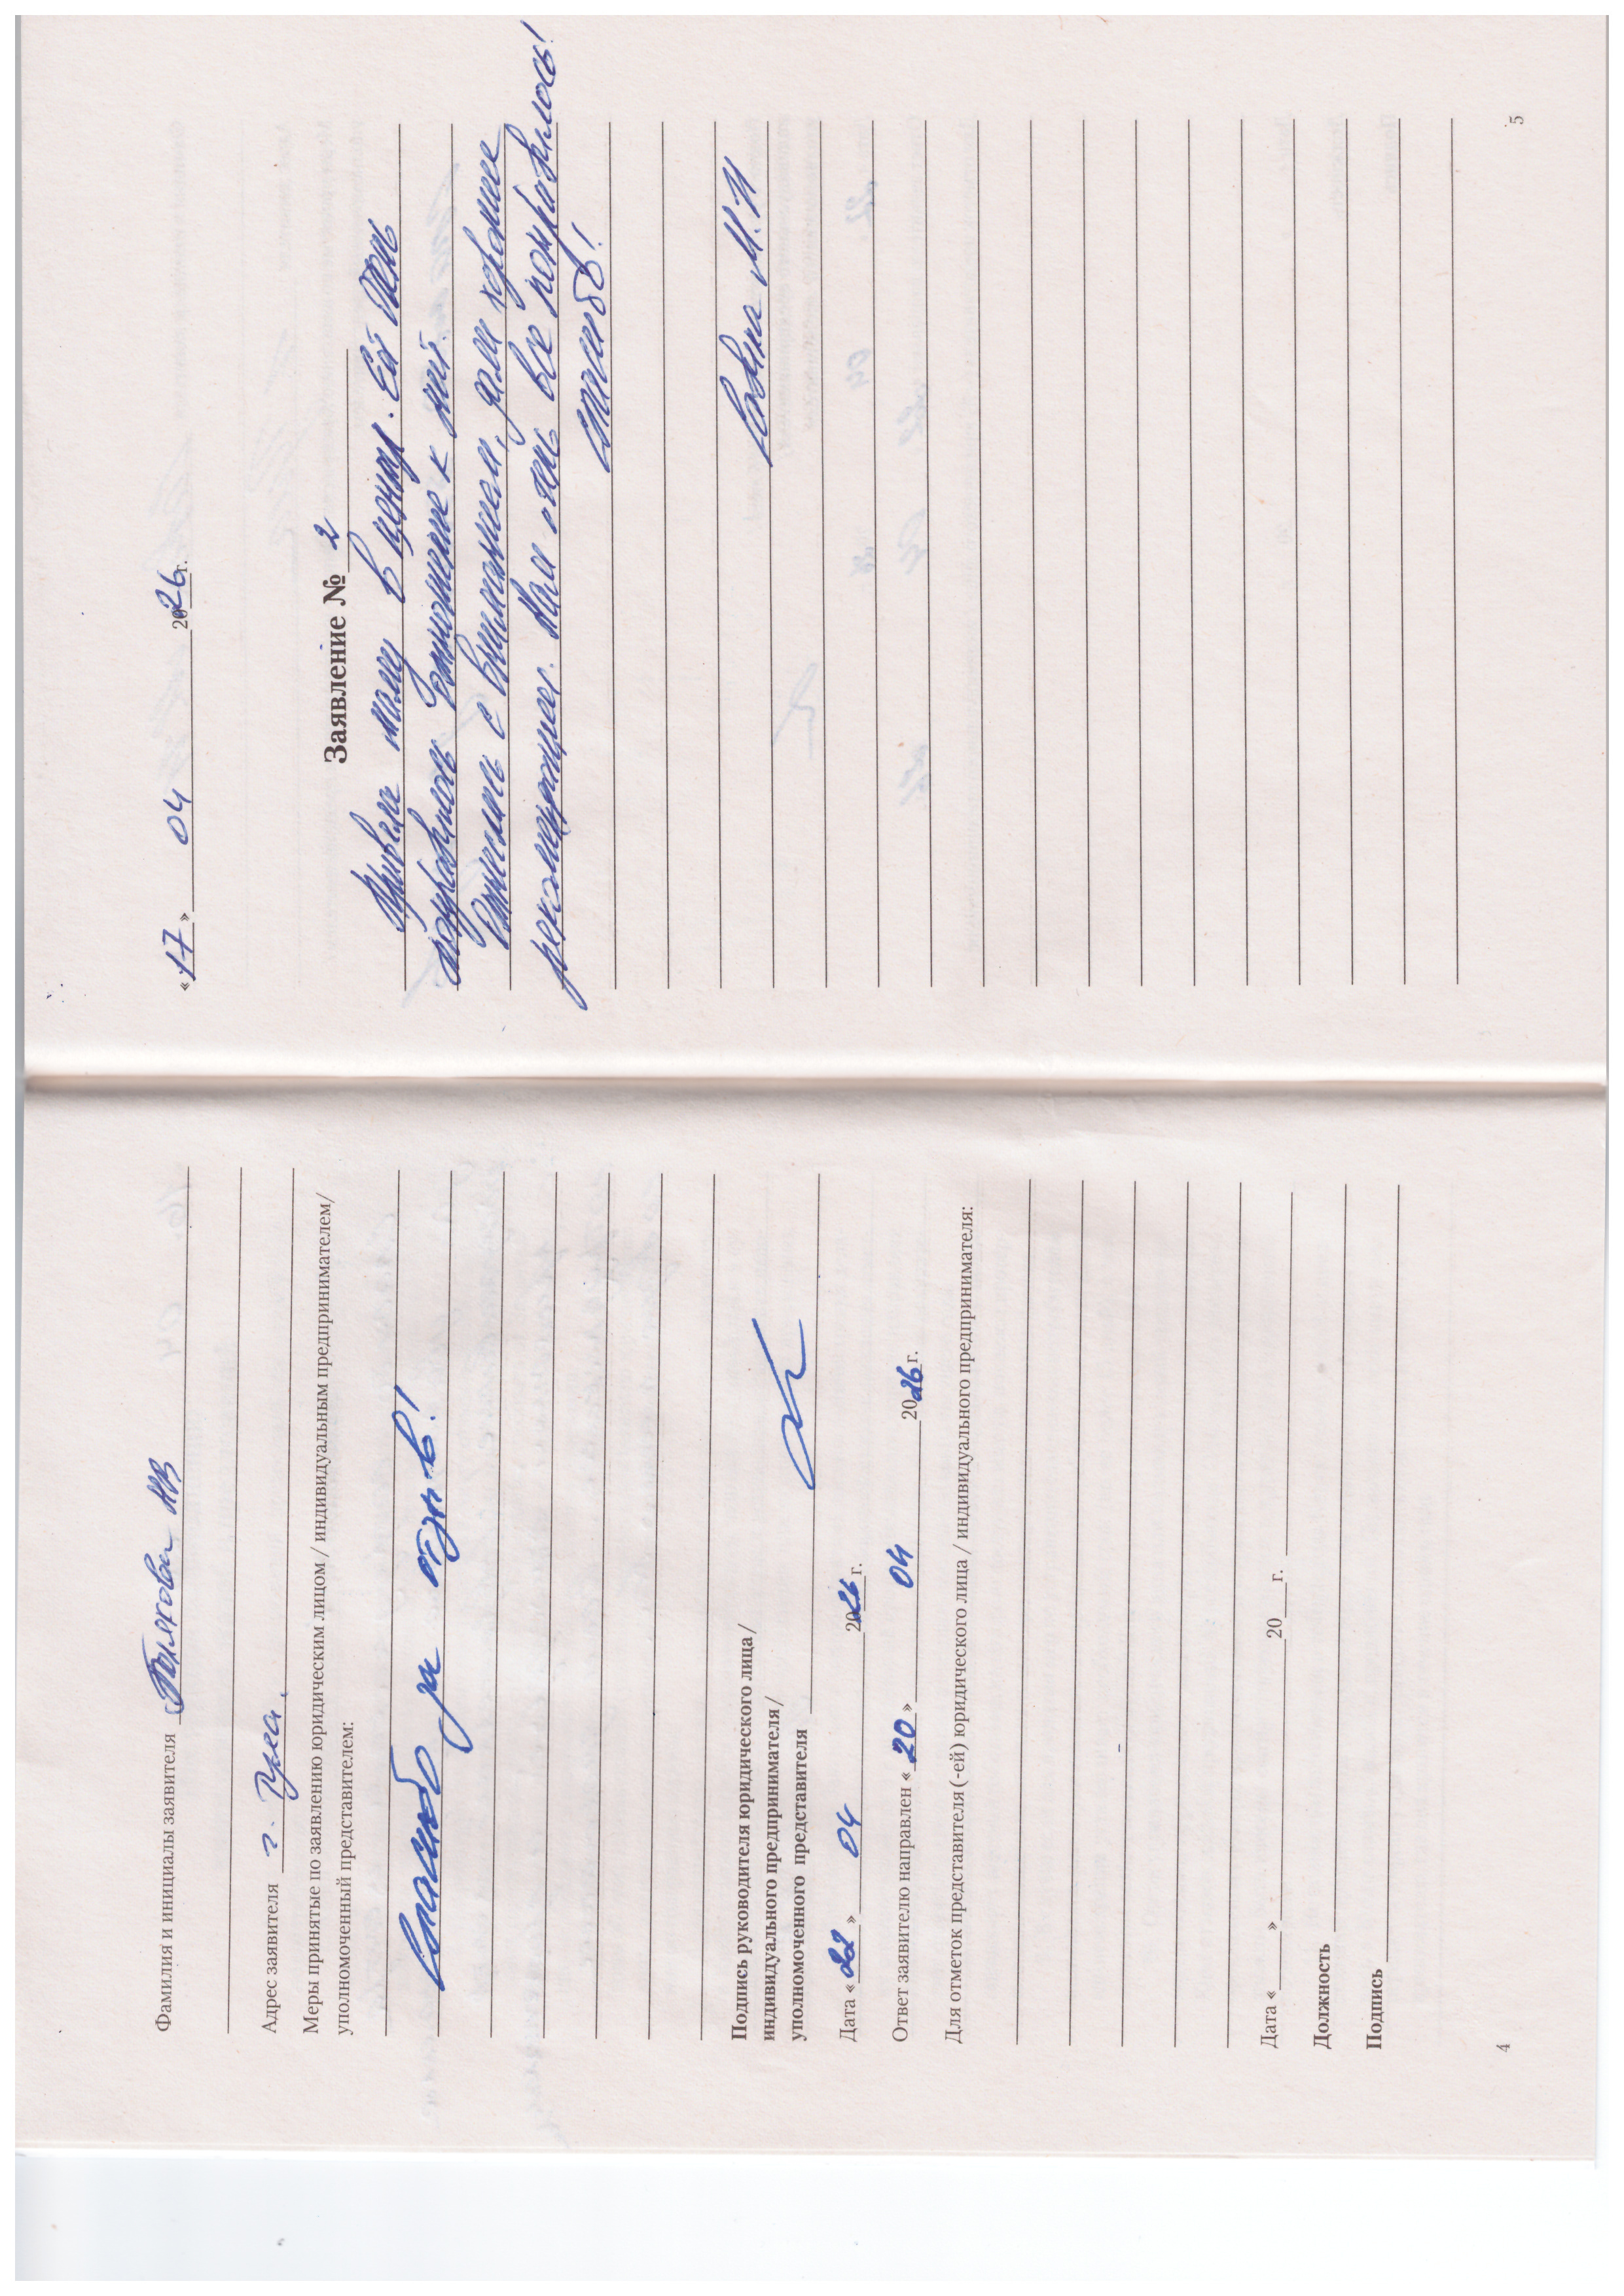 Фамилия и инициалы заявителя Полякова НВ
Адрес заявителя г. Тула.
Меры принятые по заявлению юридическим лицом / индивидуальным предпринимателем/
уполномоченный представителем:
Спасибо за отзыв!
Подпись руководителя юридического лица/
индивидуального предпринимателя/
уполномоченного представителя
Дата « 22 » 04 2026 г.
Ответ заявителю направлен « 20 » 04 2026 г.
Для отметок представителя (-ей) юридического лица / индивидуального предпринимателя:
Дата « » 20 г.
Должность
Подпись
4
«17» 04 2026 г.
Заявление № 2
Привела маму в центр. Ей очень
понравилось отношение к ней.
Отнеслись с вниманием, дали хорошие
рекомендации. Нам очень все понравилось!
Спасибо!
М.И
5